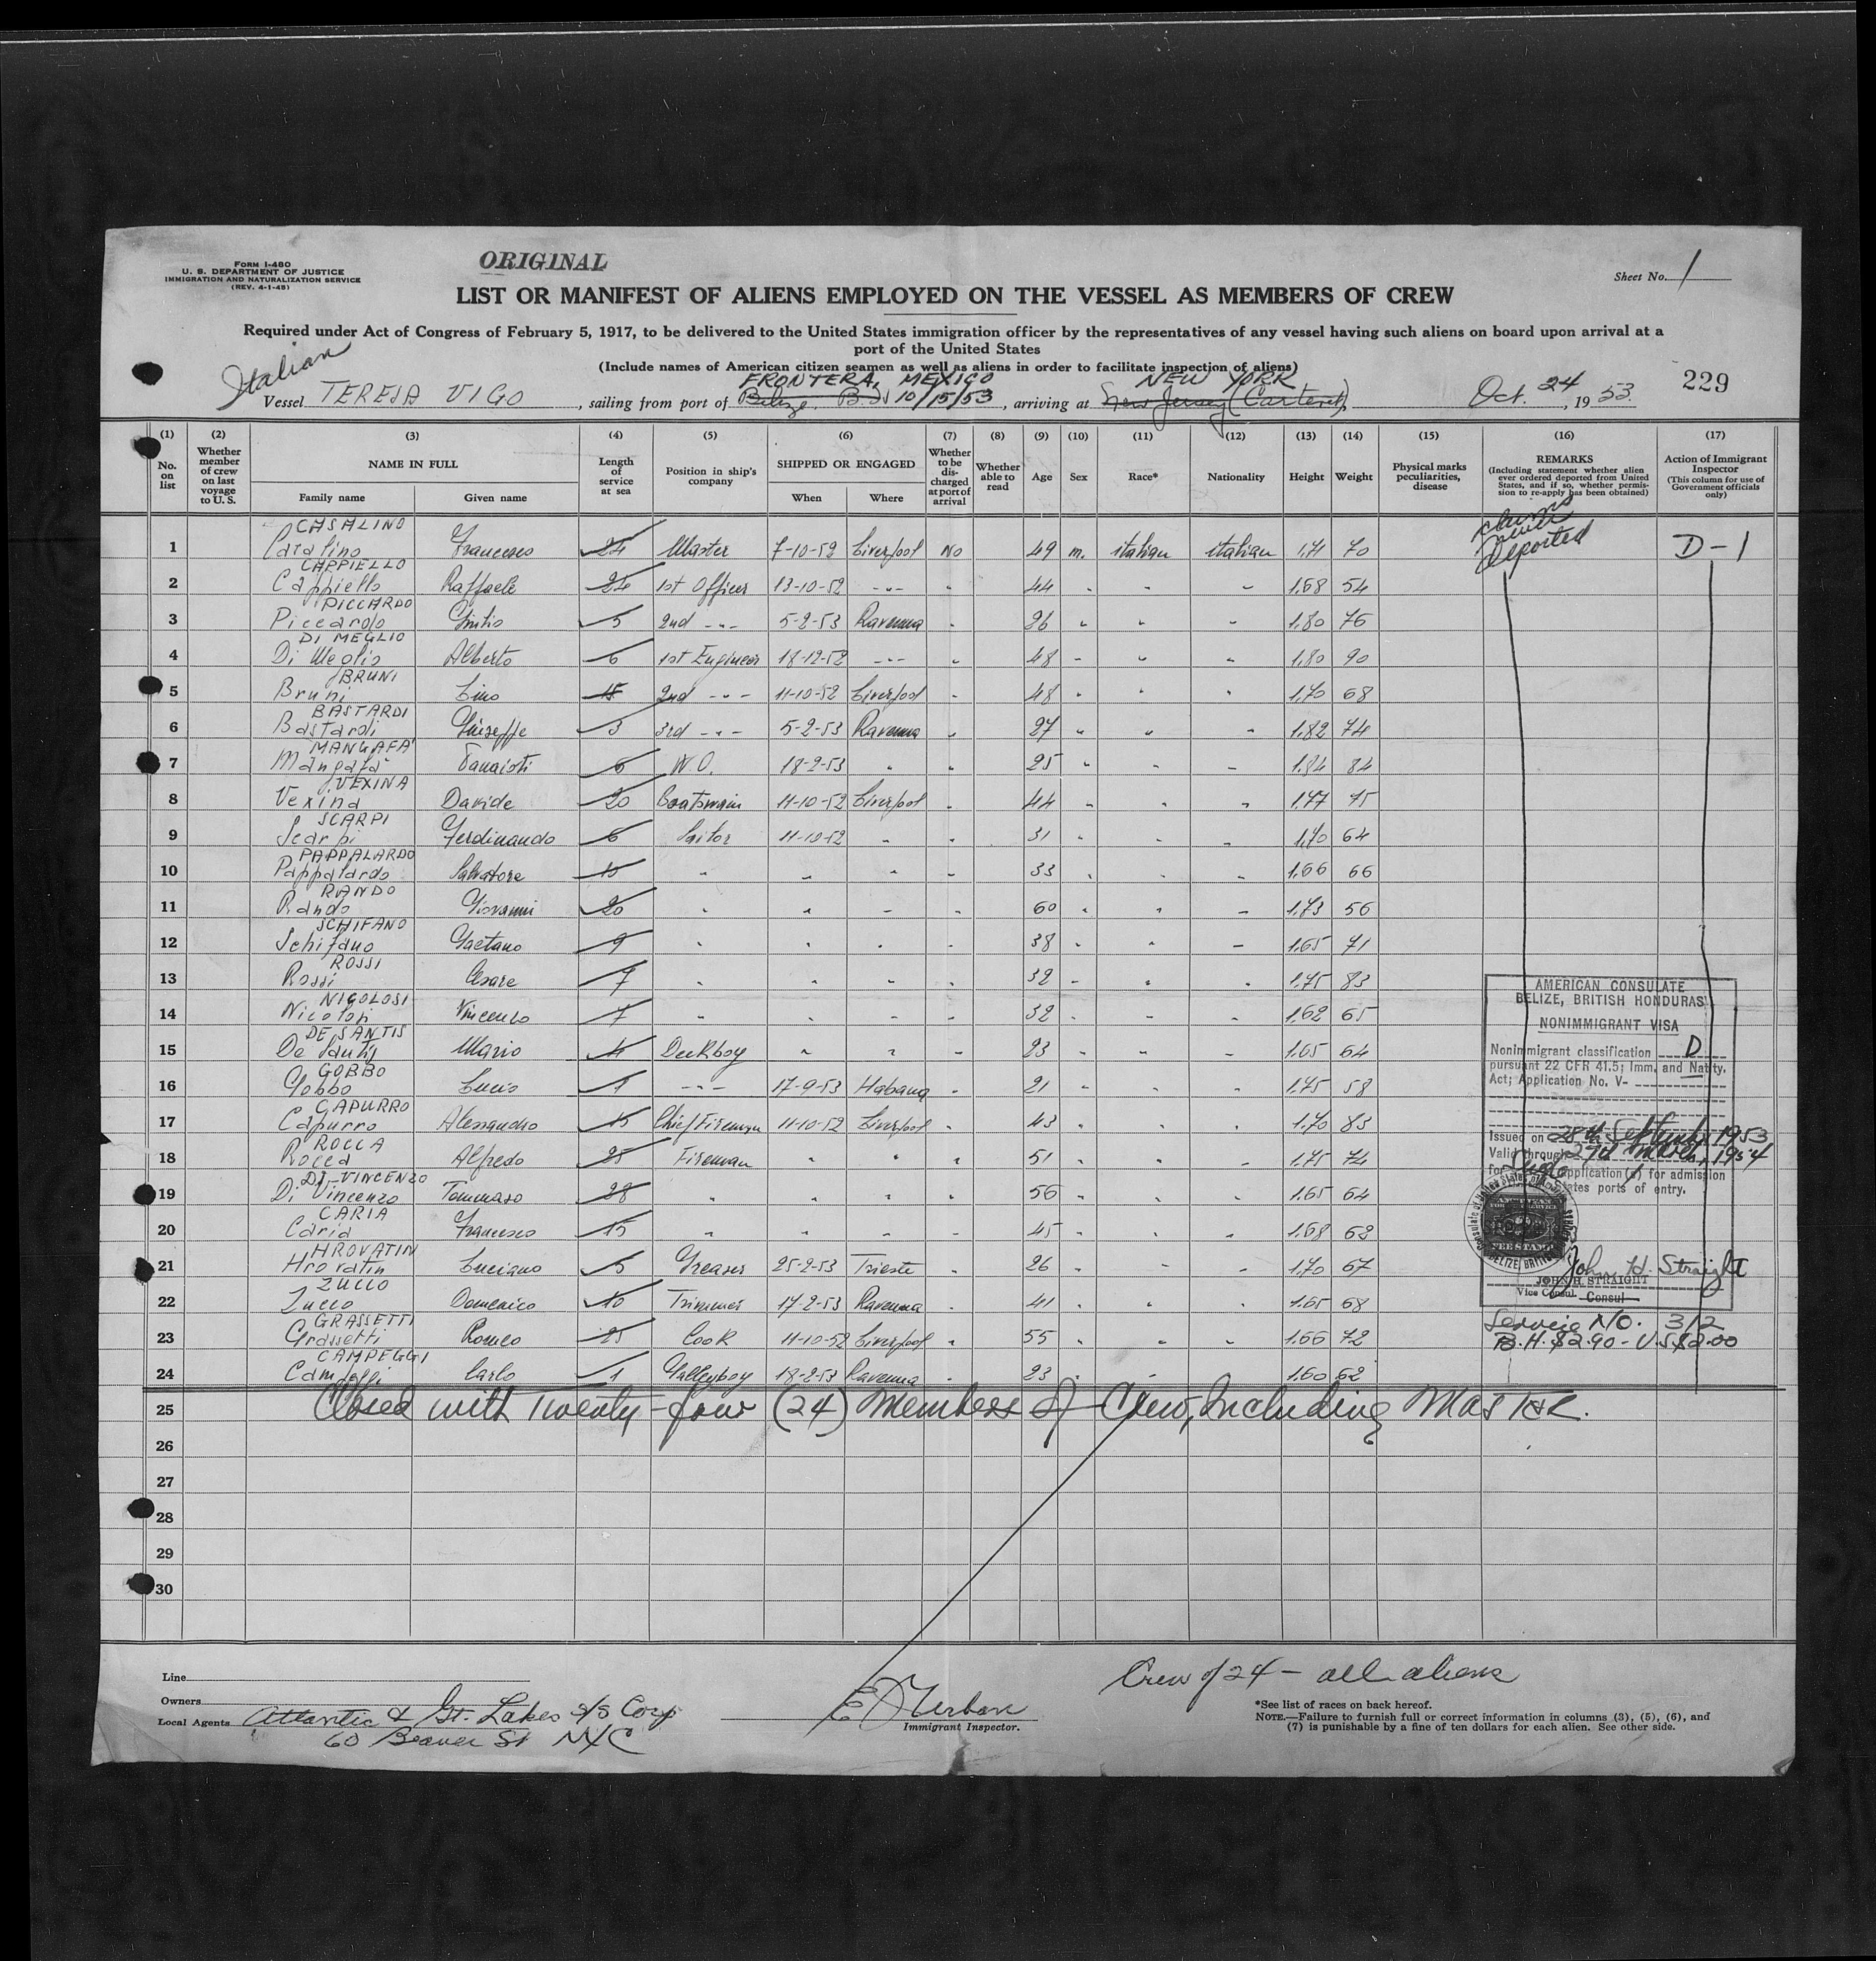 FORM I-480
U. S. DEPARTMENT OF JUSTICE
IMMIGRATION AND NATURALIZATION SERVICE
(REV. 4-1-45)
ORIGINAL
Sheet No. 1
LIST OR MANIFEST OF ALIENS EMPLOYED ON THE VESSEL AS MEMBERS OF CREW
Required under Act of Congress of February 5, 1917, to be delivered to the United States immigration officer by the representatives of any vessel having such aliens on board upon arrival at a
port of the United States
(Include names of American citizen seamen as well as aliens in order to facilitate inspection of aliens)
Italian
FRONTERA, MEXICO NEW YORK
Vessel TERESA VIGO, sailing from port of Belize, 10/15/53, arriving at New Jersey (Carteret), Oct. 24, 1953. 229
(1) (2) (3) (4) (5) (6) (7) (8) (9) (10) (11) (12) (13) (14) (15) (16) (17)
No. on list
Whether member of crew on last voyage to U. S.
NAME IN FULL Family name Given name
Length of service at sea
Position in ship's company
SHIPPED OR ENGAGED When Where
Whether to be discharged at port of arrival
Whether able to read
Age
Sex
Race*
Nationality
Height
Weight
Physical marks peculiarities, disease
REMARKS (Including statement whether alien ever ordered deported from United States, and if so, whether permission to re-apply has been obtained)
Action of Immigrant Inspector (This column for use of Government officials only)
CASALINO
1 Casalino Francesco 24 Master 7-10-52 Liverpool No 49 m. italian italian 1.71 70 claims never deported D-1
CAPPIELLO
2 Cappiello Raffaele 24 1st Officer 13-10-52 -"- " 44 " " " 1.68 54
PICCARDO
3 Piccardo Giulio 5 2nd -"- 5-2-53 Ravenna " 26 " " " 1.80 76
DI MEGLIO
4 Di Meglio Alberto 6 1st Engineer 18-12-52 -"- " 48 " " " 1.80 90
BRUNI
5 Bruni Lino 15 2nd -"- 11-10-52 Liverpool " 48 " " " 1.70 68
BASTARDI
6 Bastardi Giuseppe 3 3rd -"- 5-2-53 Ravenna " 27 " " " 1.82 74
MANGAFA'
7 Mangafa' Panaioti 6 W.O. 18-2-53 " " 25 " " " 1.84 84
VEXINA
8 Vexina Davide 20 Boatswain 11-10-52 Liverpool " 44 " " " 1.77 75
SCARPI
9 Scarpi Ferdinando 6 Sailor 11-10-52 " " 31 " " " 1.70 64
PAPPALARDO
10 Pappalardo Salvatore 15 " " " " 33 " " " 1.66 66
RANDO
11 Rando Giovanni 20 " " " " 60 " " " 1.73 56
SCHIFANO
12 Schifano Gaetano 9 " " " " 38 " " " 1.65 71
ROSSI
13 Rossi Cesare 7 " " " " 32 " " " 1.75 83
NICOLOSI
14 Nicolosi Vincenzo 7 " " " " 32 " " " 1.62 65
DE SANTIS
15 De Santis Mario 4 Deckboy " " " 23 " " " 1.65 64
GOBBO
16 Gobbo Lucio 1 -"- 17-9-53 Habana " 21 " " " 1.75 58
CAPURRO
17 Capurro Alessandro 15 Chief Fireman 11-10-52 Liverpool " 43 " " " 1.70 83
ROCCA
18 Rocca Alfredo 25 Fireman " " " 51 " " " 1.75 74
DI VINCENZO
19 Di Vincenzo Tommaso 28 " " " " 56 " " " 1.65 64
CARIA
20 Caria Francesco 15 " " " " 45 " " " 1.68 62
HROVATIN
21 Hrovatin Luciano 5 Greaser 25-2-53 Trieste " 26 " " " 1.70 67
ZUCCO
22 Zucco Domenico 10 Trimmer 17-2-53 Ravenna " 41 " " " 1.65 68
GRASSETTI
23 Grassetti Romeo 25 Cook 11-10-52 Liverpool " 55 " " " 1.66 72
CAMPEGGI
24 Campeggi Carlo 1 Galleyboy 18-2-53 Ravenna " 23 " " " 1.60 62
AMERICAN CONSULATE
BELIZE, BRITISH HONDURAS
NONIMMIGRANT VISA
Nonimmigrant classification D
pursuant 22 CFR 41.5; Imm. and Natity.
Act; Application No. V-
Issued on 28th September 1953
Valid through 27th March, 1954
for application(s) for admission
States ports of entry.
FEE STAMP
John H. Straight
JOHN H. STRAIGHT
Vice Consul Consul
Service No. 312
B.H. $2.90 - U.S $2.00
25 Closed with Twenty-four (24) Members of Crew, Including Master.
26
27
28
29
30
Line
Owners
Local Agents Atlantic & Gt. Lakes S/S Corp
60 Beaver St NYC
Immigrant Inspector.
Crew of 24 - all aliens
*See list of races on back hereof.
NOTE.—Failure to furnish full or correct information in columns (3), (5), (6), and
(7) is punishable by a fine of ten dollars for each alien. See other side.